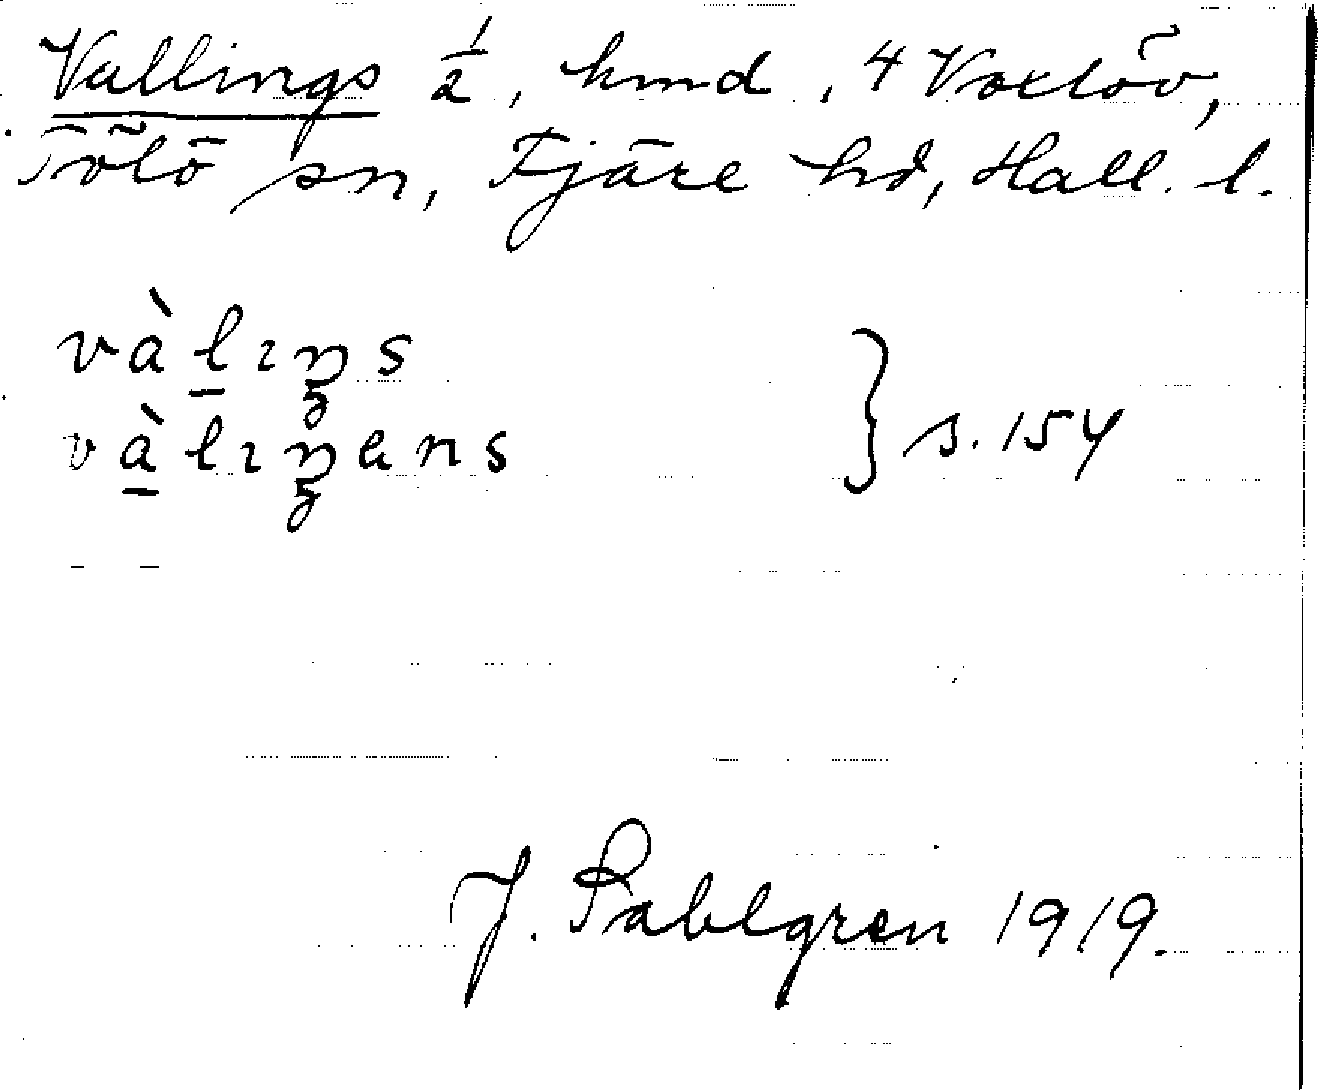 Vallings 1/2, hmd, 4 Voxlöv,
Tölö sn, Fjäre hd, Hall. l.
vàlıŋs } s. 154
vàlıŋens
J. Sahlgren 1919.